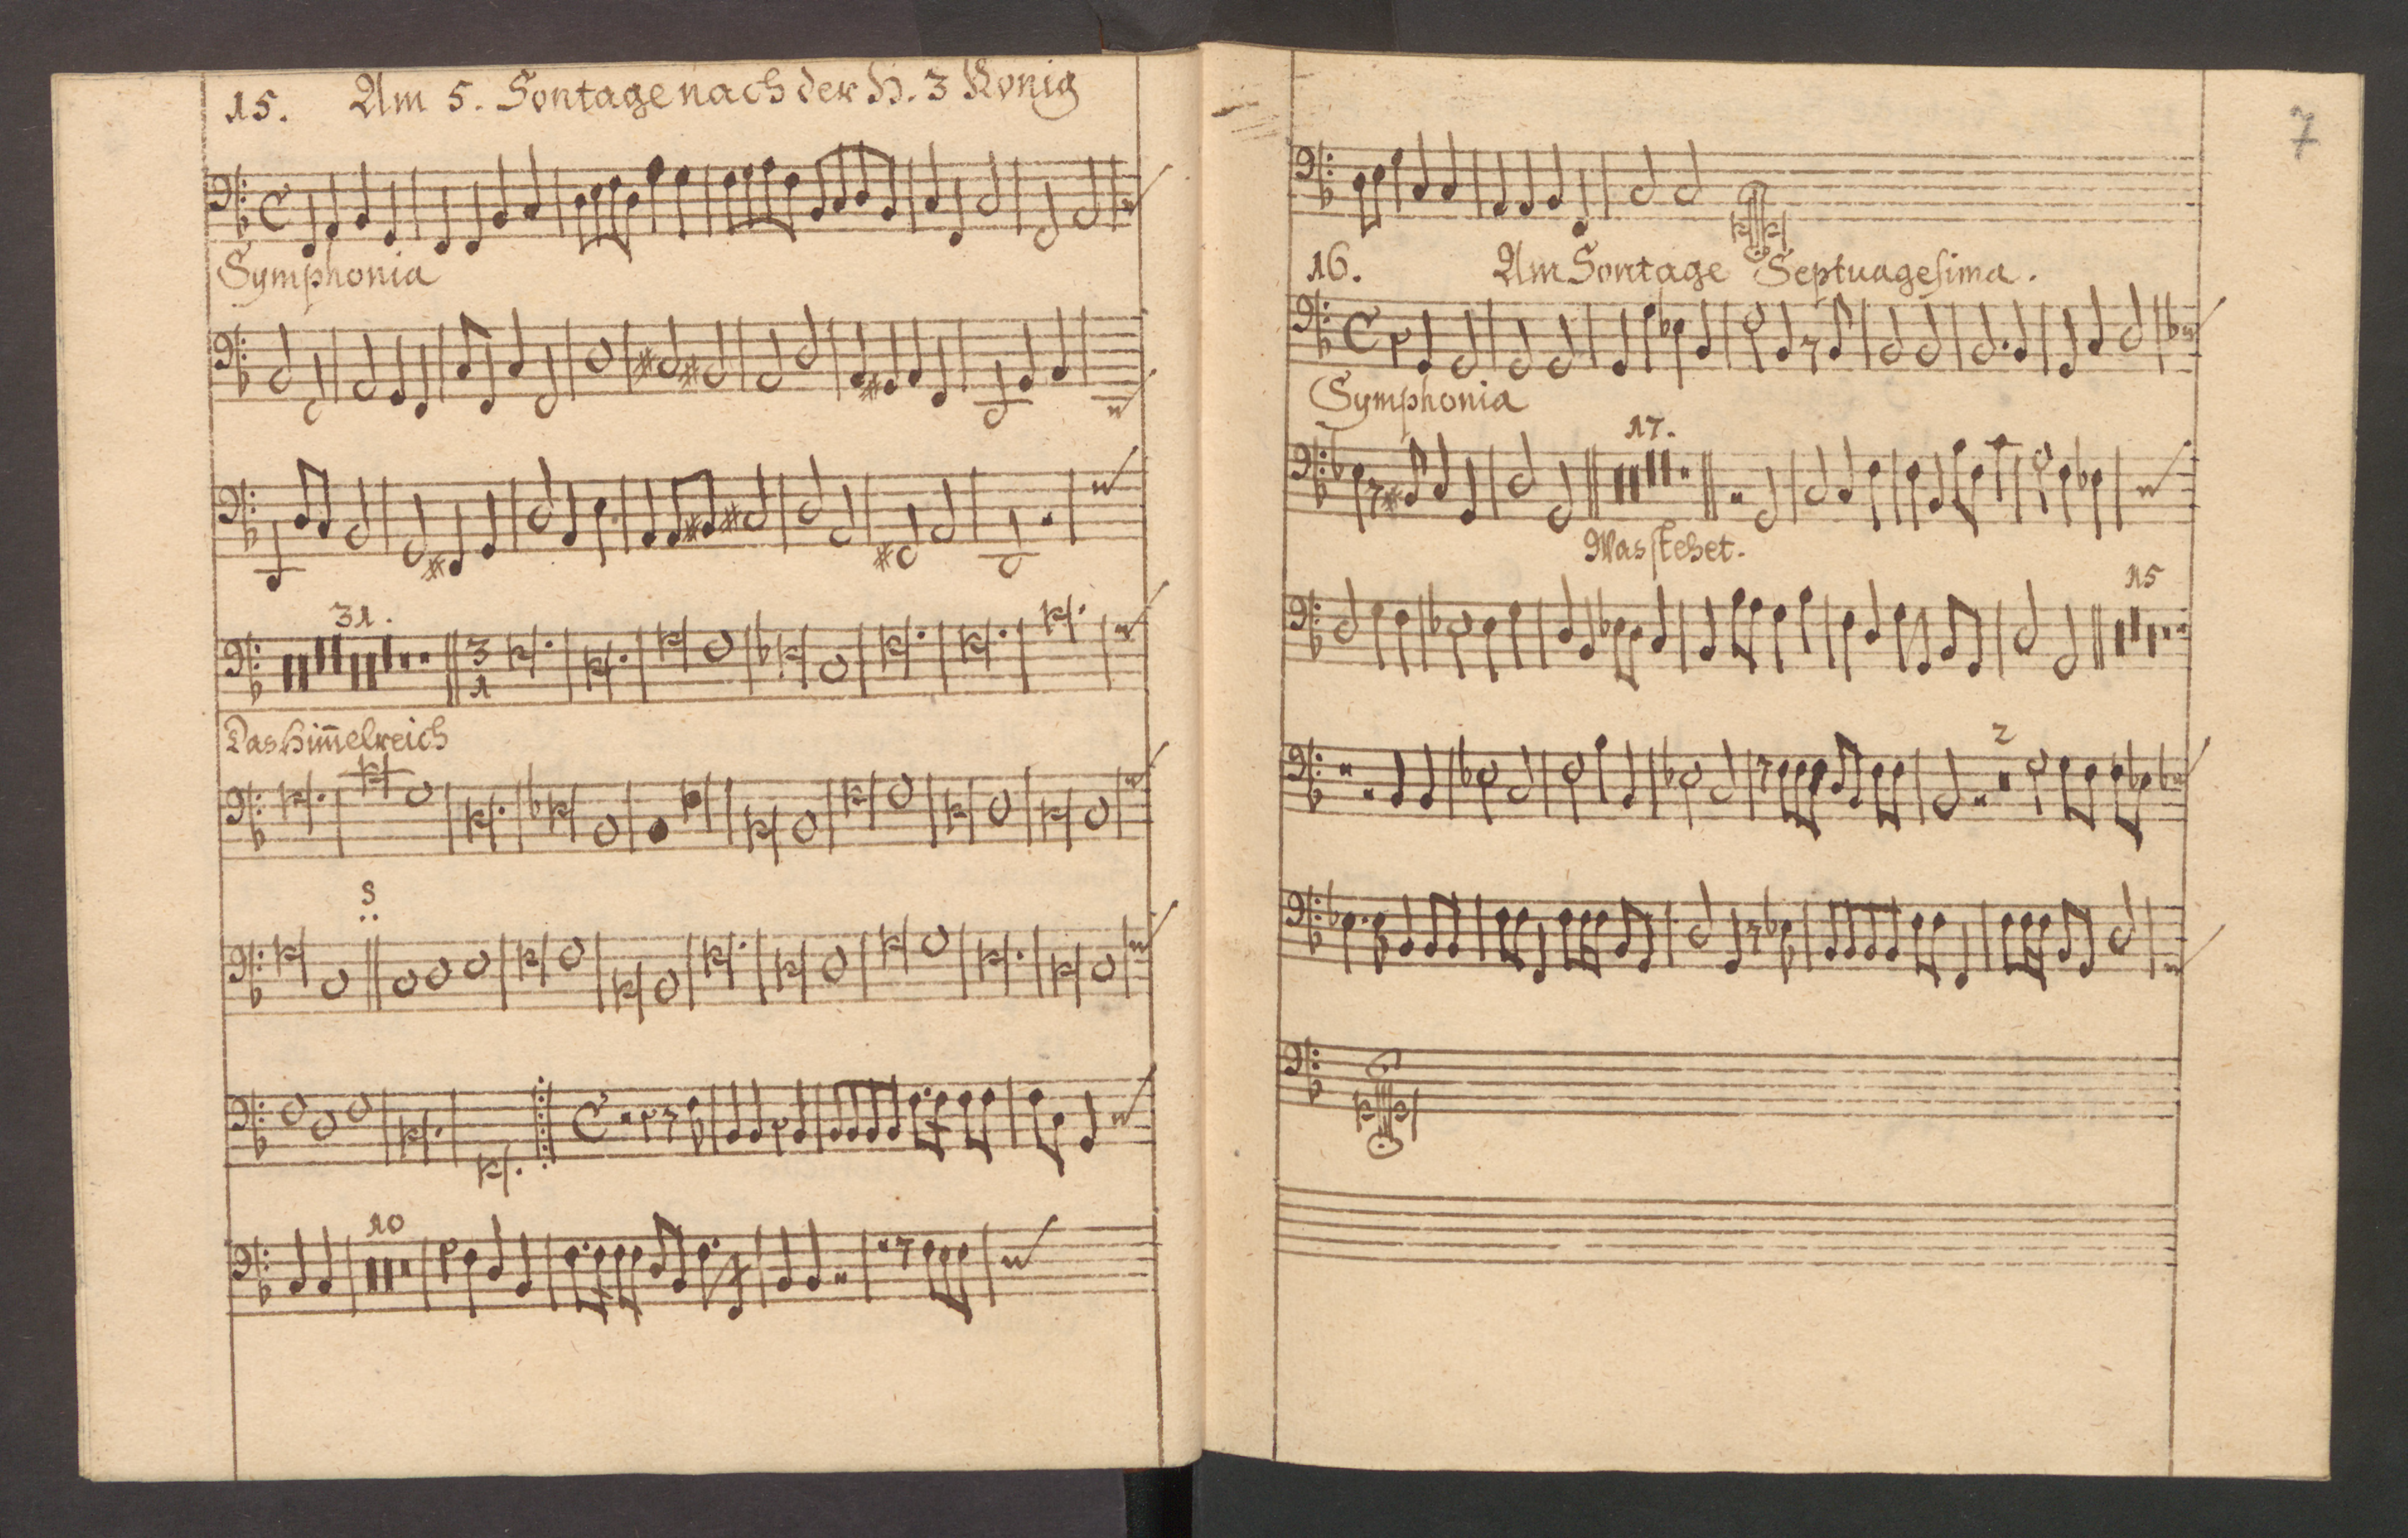 15. Am 5. Sontage nach der H. 3 König
Symphonia
31.
3
1
Das Him̅elreich
S
10
7
16. Am Sontage Septuagesima.
Symphonia
17.
Was stehet.
15
2